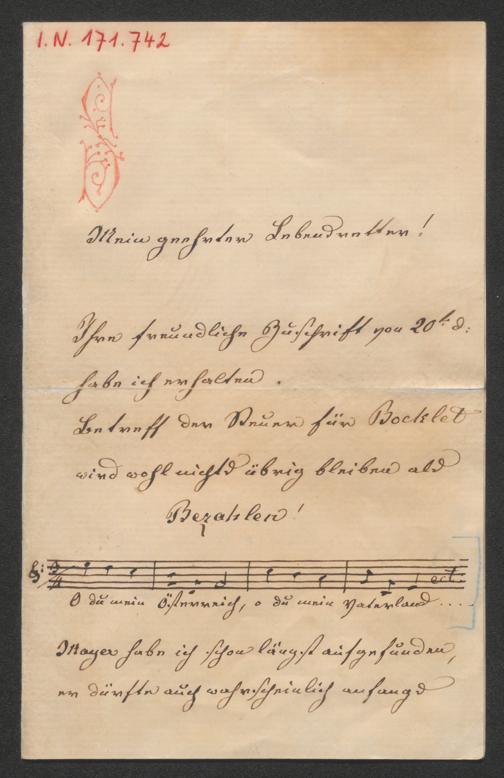 I.N. 171.742
Mein geehrter Lebensretter!
Ihre freundliche Zuschrift von 20t. d:
habe ich erhalten.
Betreff der Steuer für Bocklet
wird wohl nichts übrig bleiben als
Bezahlen!
O du mein Österreich, o du mein Vaterland....
ect:
Mayer habe ich schon längst aufgefunden,
er dürfte auch wahrscheinlich anfangs